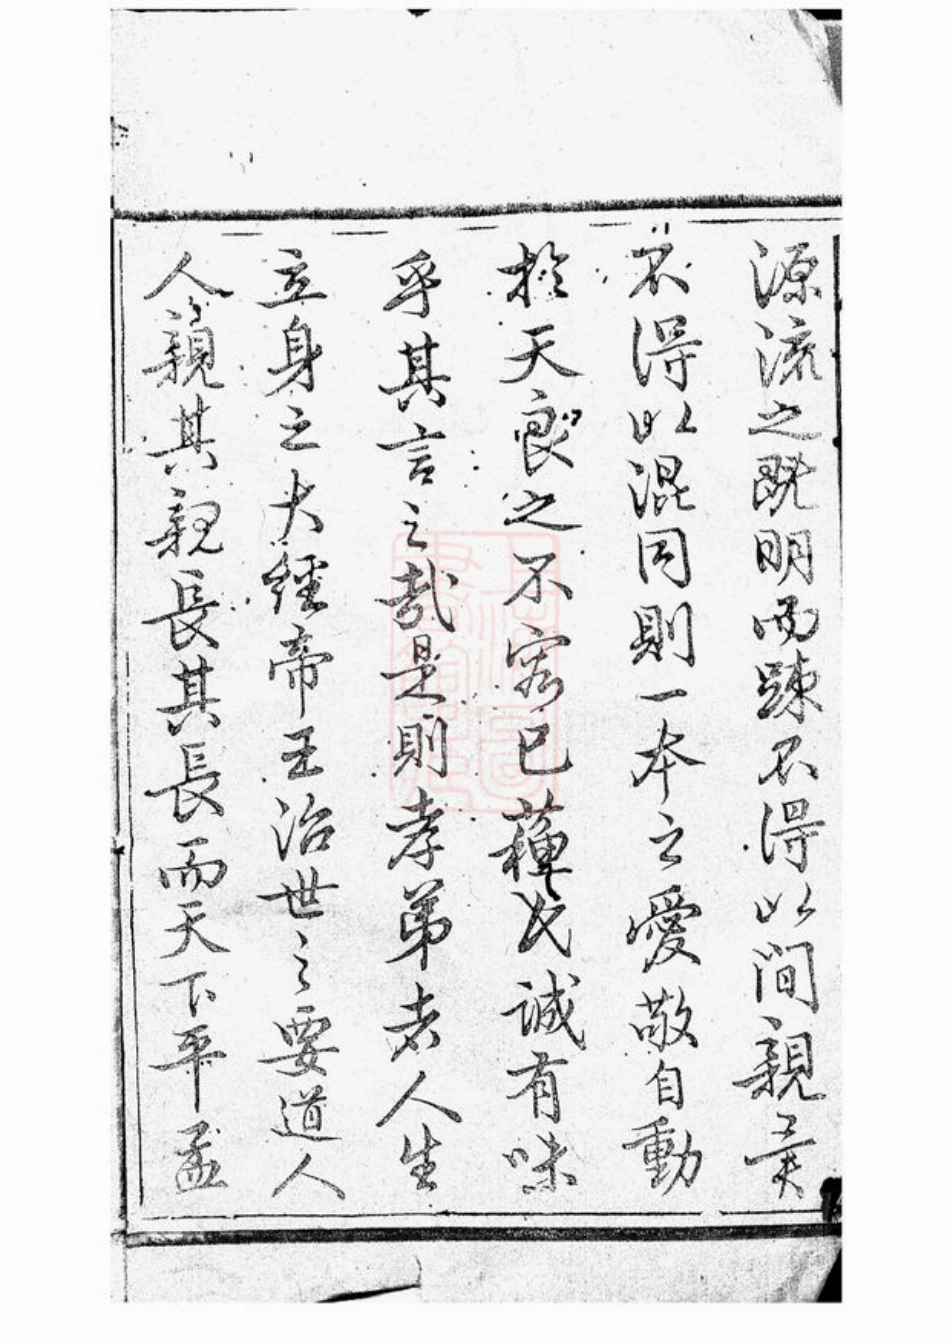 源流之既明而踈不得以間親異
不得以混同則一本之愛敬自動
於天良之不容已蘓氏誠有味
乎其言之哉是則孝弟者人生
立身之大經帝王治世之要道人
人親其親長其長而天下平孟